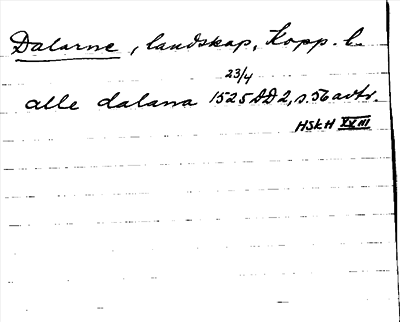 Dalarne, landskap, Kopp. l.
23/4
alle dalana 1525 DD 2, s. 56 avtr.
HSkH XVIII